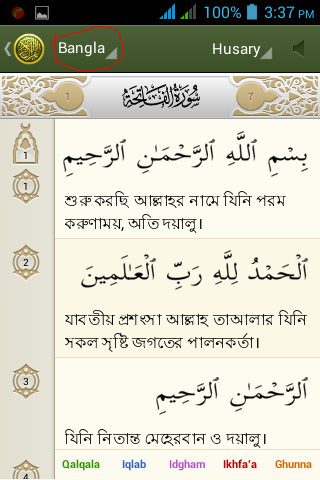 100% 3:37 PM
Bangla Husary
1 سُورَةُ الفَاتِحَة 7
1
بِسْمِ ٱللَّهِ ٱلرَّحْمَـٰنِ ٱلرَّحِيمِ
1
শুরু করছি আল্লাহর নামে যিনি পরম
করুণাময়, অতি দয়ালু।
2
ٱلْحَمْدُ لِلَّهِ رَبِّ ٱلْعَـٰلَمِينَ
যাবতীয় প্রশংসা আল্লাহ তাআলার যিনি
সকল সৃষ্টি জগতের পালনকর্তা।
3
ٱلرَّحْمَـٰنِ ٱلرَّحِيمِ
যিনি নিতান্ত মেহেরবান ও দয়ালু।
4
Qalqala Iqlab Idgham Ikhfa'a Ghunna